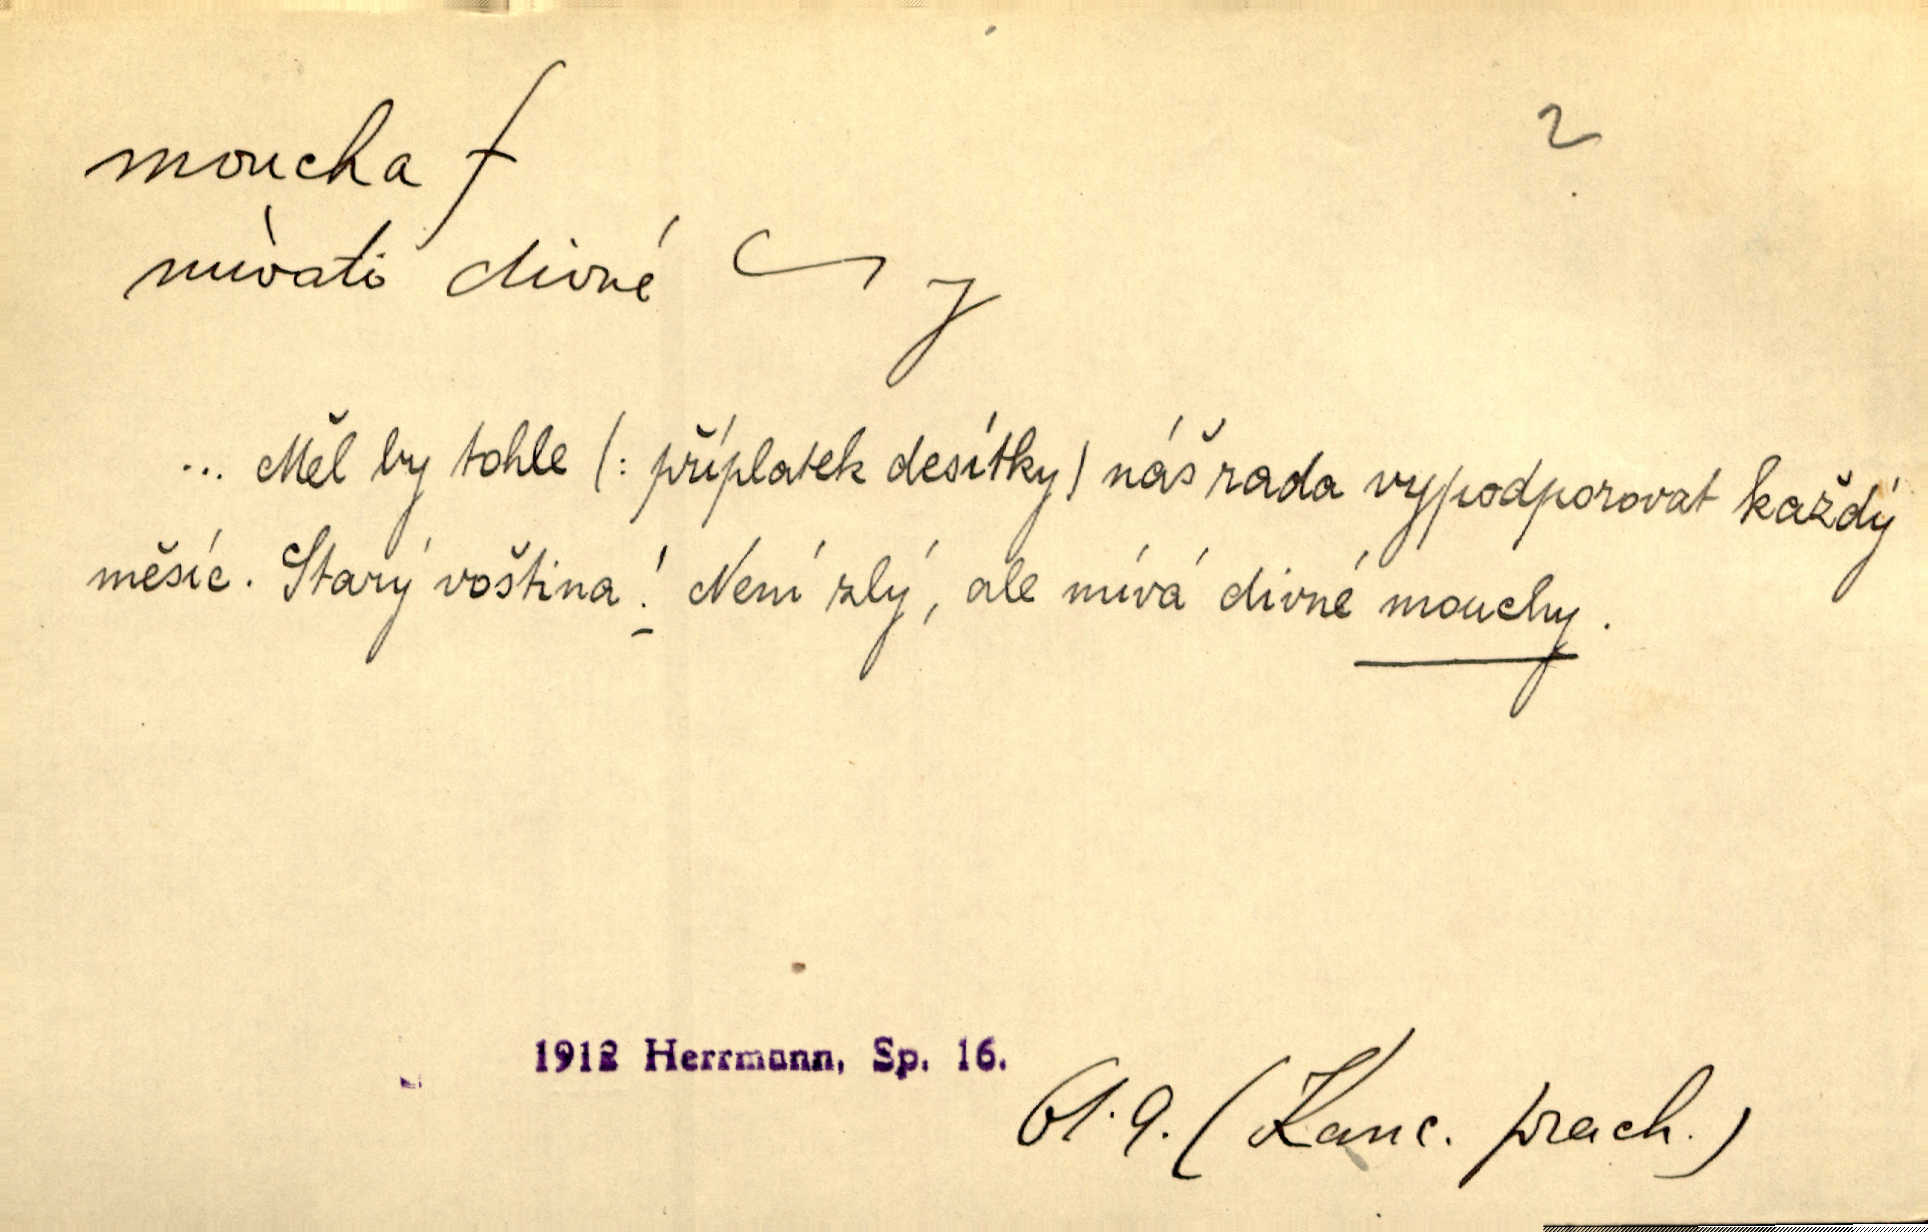 2
moucha f
mívati divné ~ y
... Měl by tohle (: příplatek desítky) náš rada vypodporovat každý
měsíc. Starý voština! Není zlý, ale mívá divné mouchy.
1912 Herrmann, Sp. 16.
61.9. (Kanc. prach.)